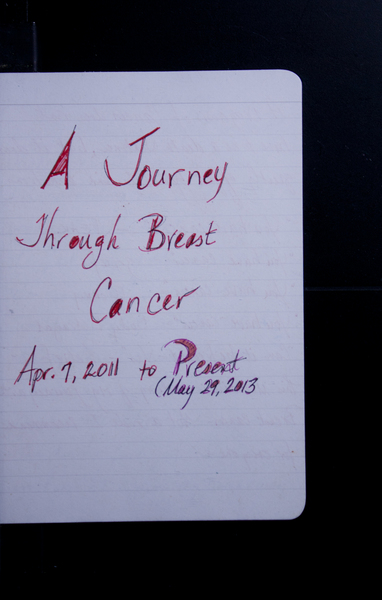 A Journey
Through Breast
Cancer
Apr. 7, 2011 to Present
(May 29, 2013